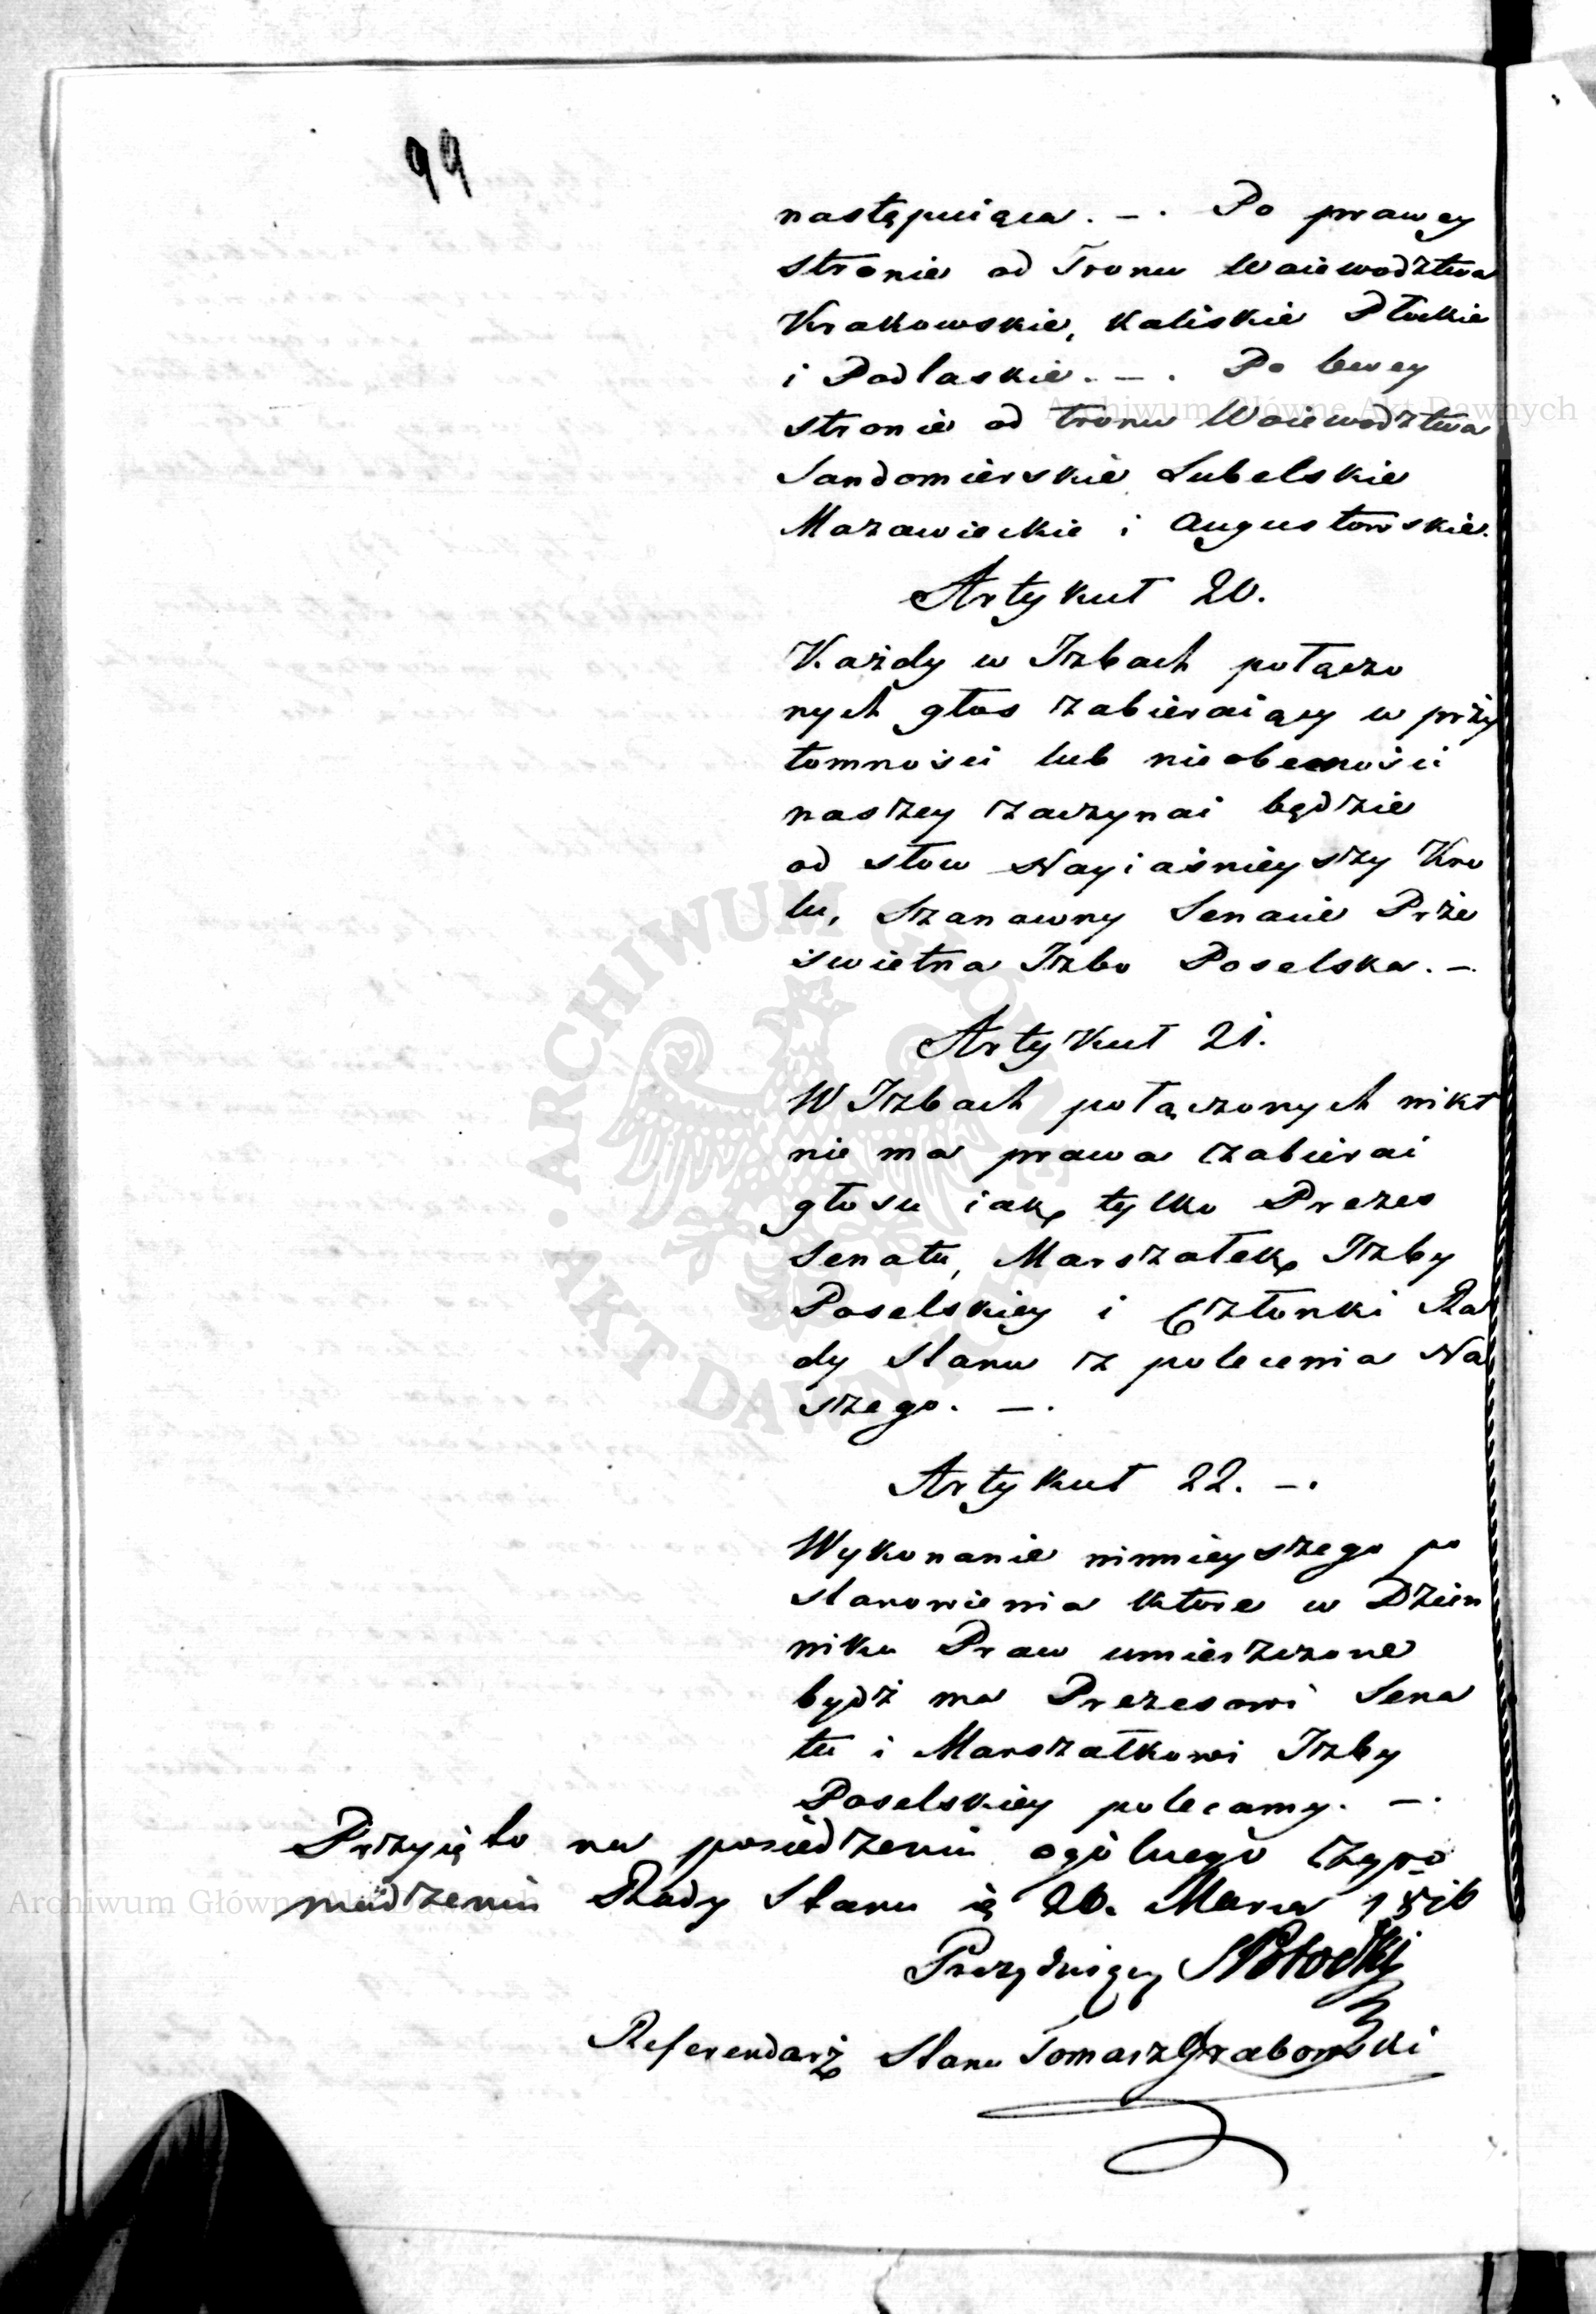 99
następuiąca. –. Po prawey
stronie od Tronu Woiewodztwa
Krakowskie, Kaliskie Płockie
i Podlaskie. –. Po lewey
Archiwum Główne Akt Dawnych
stronie od tronu Woiewodztwa
Sandomierskie Lubelskie
Mazowieckie i Augustowskie.
Artykuł 20.
Każdy w Izbach połączo
nych głos zabieraiący w przy
tomności lub nieobecności
naszey zaczynać będzie
od słow Nayiaśnieyszy Kro
lu, Szanowny Senacie Prze
świetna Izbo Poselska. –.
Artykuł 21.
W Izbach połączonych nikt
nie ma prawa zabierać
głosu iak tylko Prezes
Senatu, Marszałek Izby
Poselskiey i Członki Ra
dy Stanu z polecenia Na
szego. –.
ARCHIWUM GŁÓWNE · AKT DAWNYCH ·
Artykuł 22. –.
Wykonanie ninnieyszego po
stanowienia które w Dzien
niku Praw umieszczone
bydź ma Prezesowi Sena
tu i Marszałkowi Izby
Poselskiey polecamy. –.
Przyięto na posiedzeniu ogólnego zgro
madzenia Rady Stanu 20. Marca 1816
Archiwum Główne Akt Dawnych
Prezyduiący S Potocki
Referendarz Stanu Tomasz Grabowski